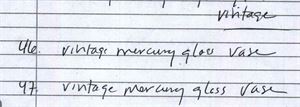 vintage
46. vintage mercury glass vase
47. vintage mercury glass vase